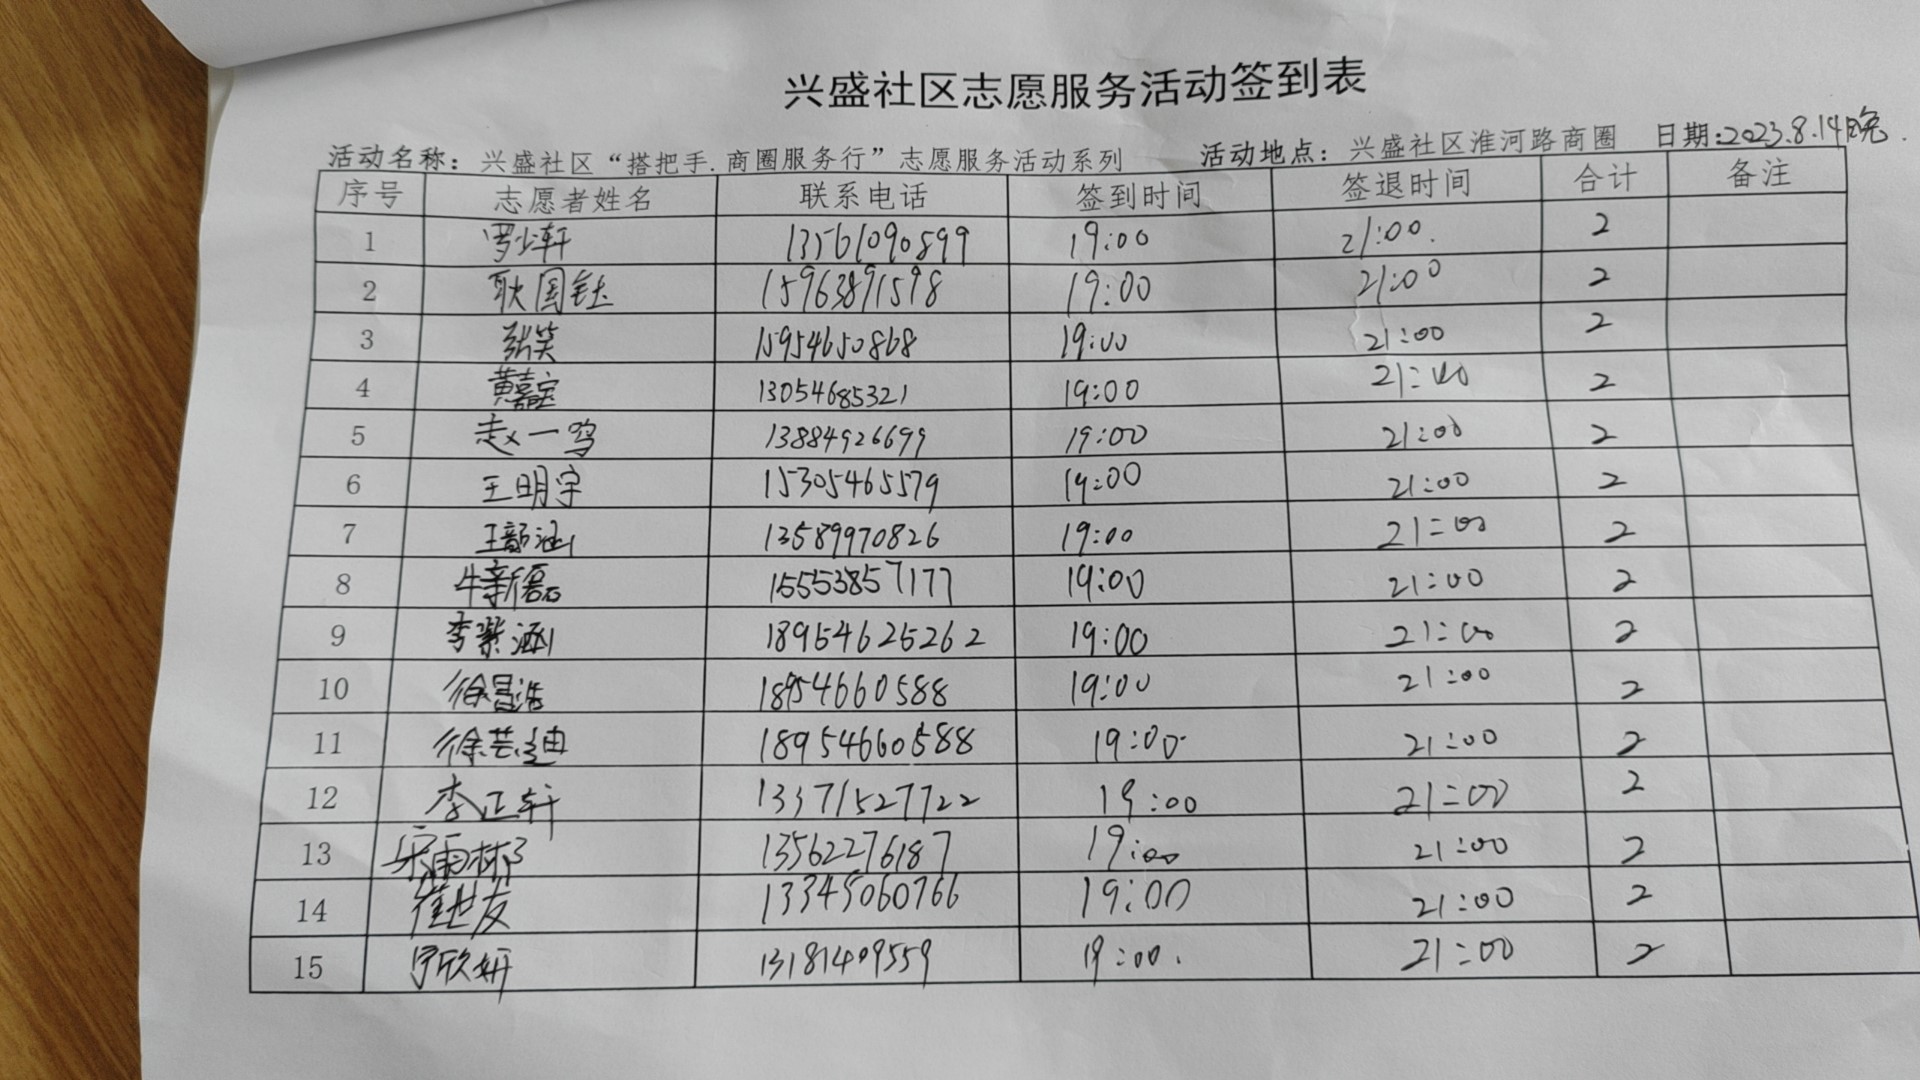 兴盛社区志愿服务活动签到表
活动名称：兴盛社区“搭把手.商圈服务行”志愿服务活动系列 活动地点：兴盛社区淮河路商圈 日期:2023.8.14晚.
序号 志愿者姓名 联系电话 签到时间 签退时间 合计 备注
1 罗少轩 13561090899 19:00 21:00. 2
2 耿国钰 15963891598 19:00 21:00 2
3 张笑 15954650868 19:00 21:00 2
4 黄嘉宝 13054685321 19:00 21:00 2
5 赵一鸣 13884926699 19:00 21:00 2
6 王明宇 15305465579 19:00 21:00 2
7 王韵涵 13589970826 19:00 21:00 2
8 牛新磊 15553857177 19:00 21:00 2
9 李紫涵 18954625262 19:00 21:00 2
10 徐昌浩 18954660588 19:00 21:00 2
11 徐芸迪 18954660588 19:00 21:00 2
12 李正轩 13371527722 19:00 21:00 2
13 13562276187 19:00 21:00 2
14 崔世友 13345060766 19:00 21:00 2
15 欣妍 13181409559 19:00. 21:00 2